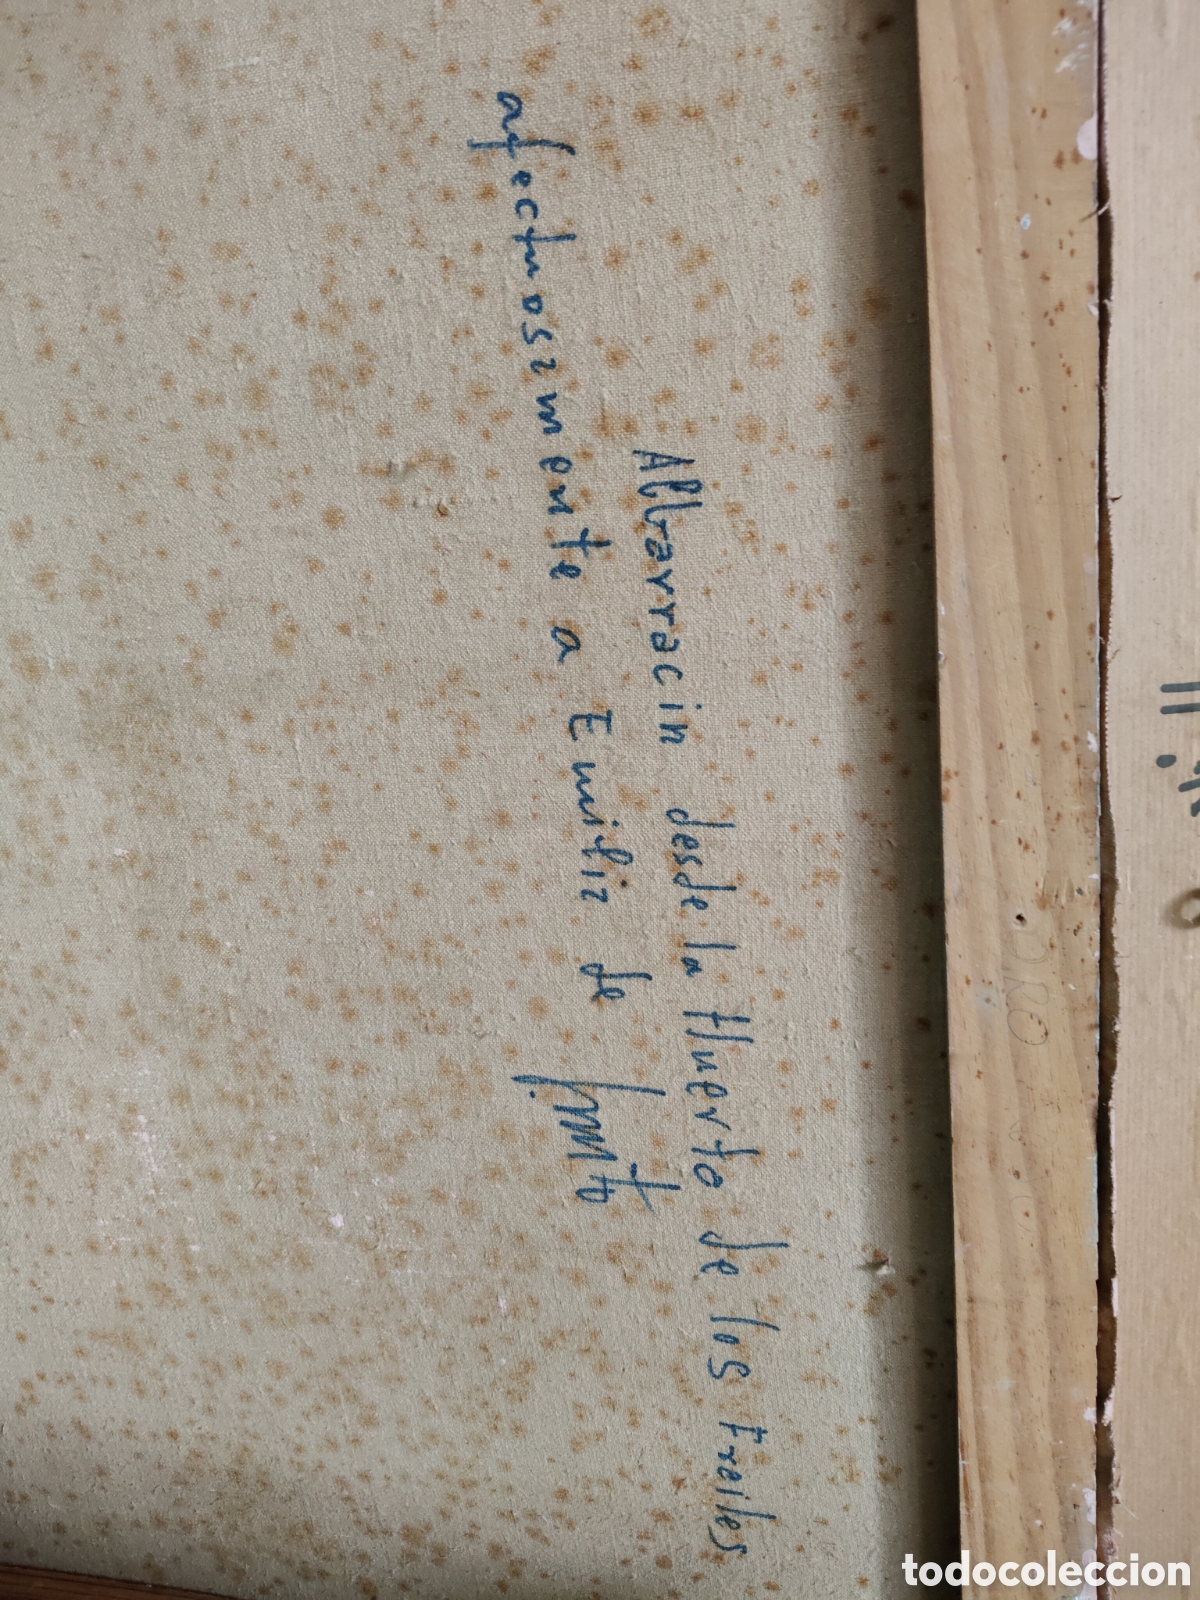 Albarracin desde la Huerto de los Freiles
afectuosamente a Emilia de
ORO
todocoleccion